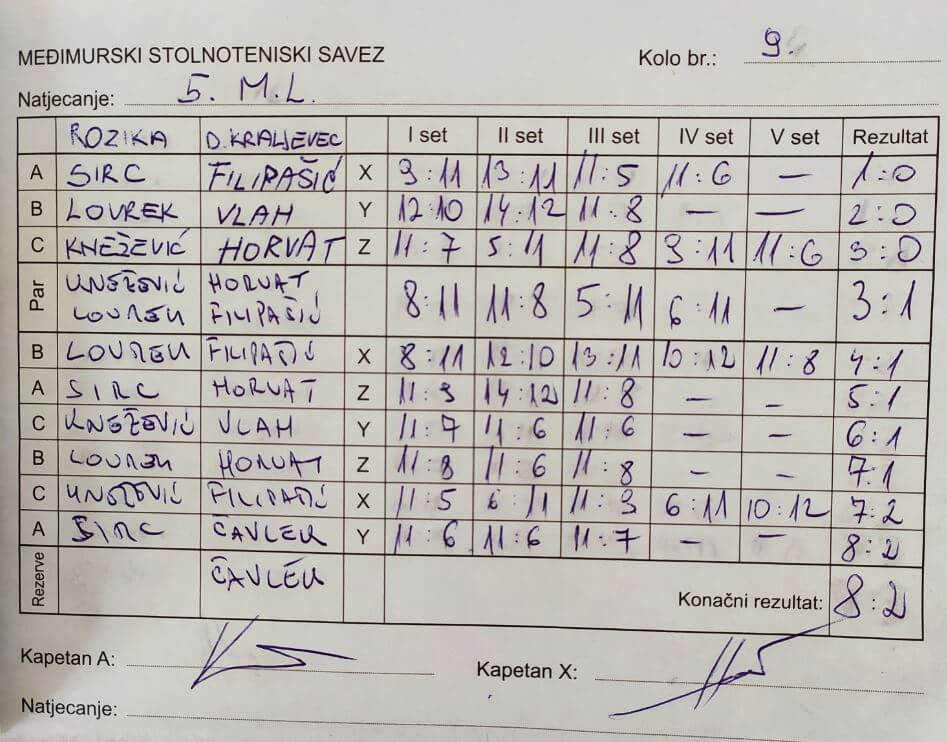 MEĐIMURSKI STOLNOTENISKI SAVEZ Kolo br.: 9.
Natjecanje: 5. M.L.
ROZIKA D. KRALJEVEC I set II set III set IV set V set Rezultat
A SIRC FILIPAŠIĆ X 9:11 13:11 11:5 11:6 — 1:0
B LOVREK VLAH Y 12:10 14:12 11:8 — — 2:0
C KNEŽEVIĆ HORVAT Z 11:7 5:11 11:8 3:11 11:6 3:0
Par KNEŽEVIĆ HORVAT 8:11 11:8 5:11 6:11 — 3:1
LOVREK FILIPAŠIĆ
B LOVREK FILIPAŠIĆ X 8:11 12:10 13:11 10:12 11:8 4:1
A SIRC HORVAT Z 11:9 14:12 11:8 — — 5:1
C KNEŽEVIĆ VLAH Y 11:7 11:6 11:6 — — 6:1
B LOVREK HORVAT Z 11:8 11:6 11:8 — — 7:1
C KNEŽEVIĆ FILIPAŠIĆ X 11:5 6:11 11:3 6:11 10:12 7:2
A SIRC ČAVLEK Y 11:6 11:6 11:7 — — 8:2
Rezerve ČAVLEK Konačni rezultat: 8:2
Kapetan A: Kapetan X:
Natjecanje: